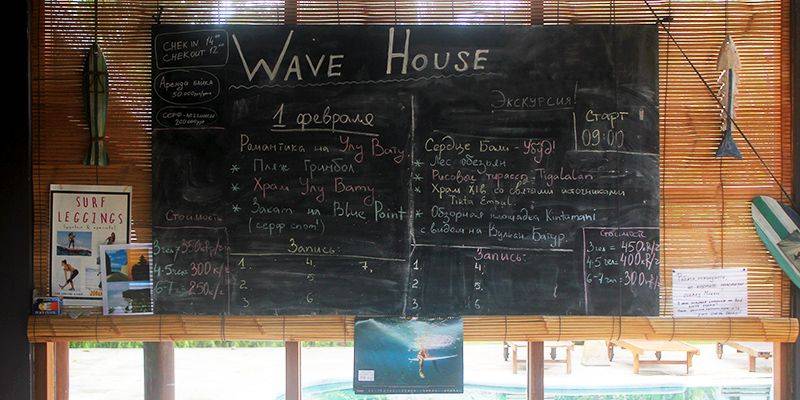 WAVE HOUSE
CHEK IN 14 00
CHEK OUT 12 00
Аренда байка
50.000
200.000
1 февраля
Романтика на Улу Вату
* Пляж Гринбол
* Храм Улу Вату
* Закат на Blue Point
(серф спот)
Стоимость
4-5 чел
6-7
Запись:
1. 4. 7.
2. 5
3. 6
Экскурсия!
Старт
09:00
Сердце Бали - Убуд!
* Лес обезьян
* Рисовое террасы - Tigalalan
* Храм XIв. со святыми источниками
Tirta Empul.
* Обзорная площадка Kintamani
с видом на Вулкан Батур.
Запись:
1. 4.
2. 5
3. 6
Стоимость
3 чел = 450к/г
4-5 чел 400к/г
6-7 чел = 300к/г
SURF
LEGGINGS